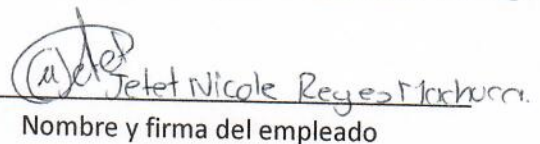 Jetet Nicole Reyes Machuca.
Nombre y firma del empleado